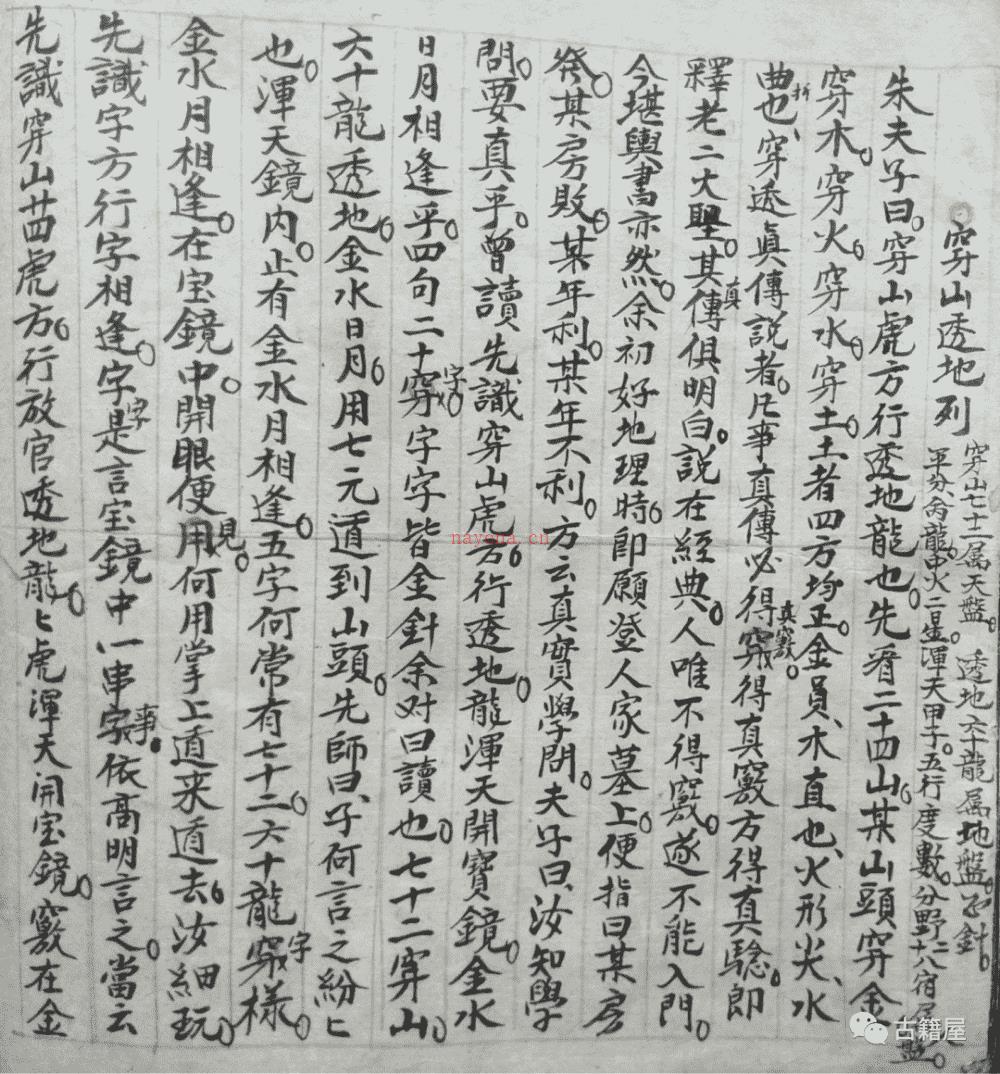 穿山透地列
穿山七十二属天盤。透地六十龍属地盤正針。
平分禽龍。中火二星。渾天甲子。五行度數。分野廿八宿属盤。
朱夫子曰。穿山虎方行透地龍也。先看二十四山。某山頭穿金
穿木。穿火。穿水。穿土。土者四方均正。金員、木直也、火形尖、水
曲折也、穿透眞傳説者。凡事真傳必得竅真竅。得真竅方得真騐。即
釋老二大聖。其真傳俱明白。説在經典。人唯不得竅。遂不能入門。
今堪輿書亦然。余初好地理時。即願登人家墓上。便指曰某房
發。某房敗。某年利。某年不利。方云真實學問。夫子曰、汝知學
問。要真乎。曾讀先識穿山虎。方行透地。龍渾天開寶鏡。金水
日月相逢乎。四句二十字。字字皆金針余对曰讀也。七十二穿山。
六十龍透地。金水日月。用七元遁到山頭。先師曰、子何言之紛匕
也。渾天鏡内。止有金水月相逢。五字何常有七十二。六十龍字樣。
金水月相逢。在宝鏡中。開眼便見。何用掌上遁来遁去。汝細玩。
先識字方行字相逢。字字是言宝鏡中一串事。依高明言之。當云
先識穿山廿四虎方。行放官透地龍。匕虎渾天開宝鏡。竅在金
古籍屋
nayona.cn